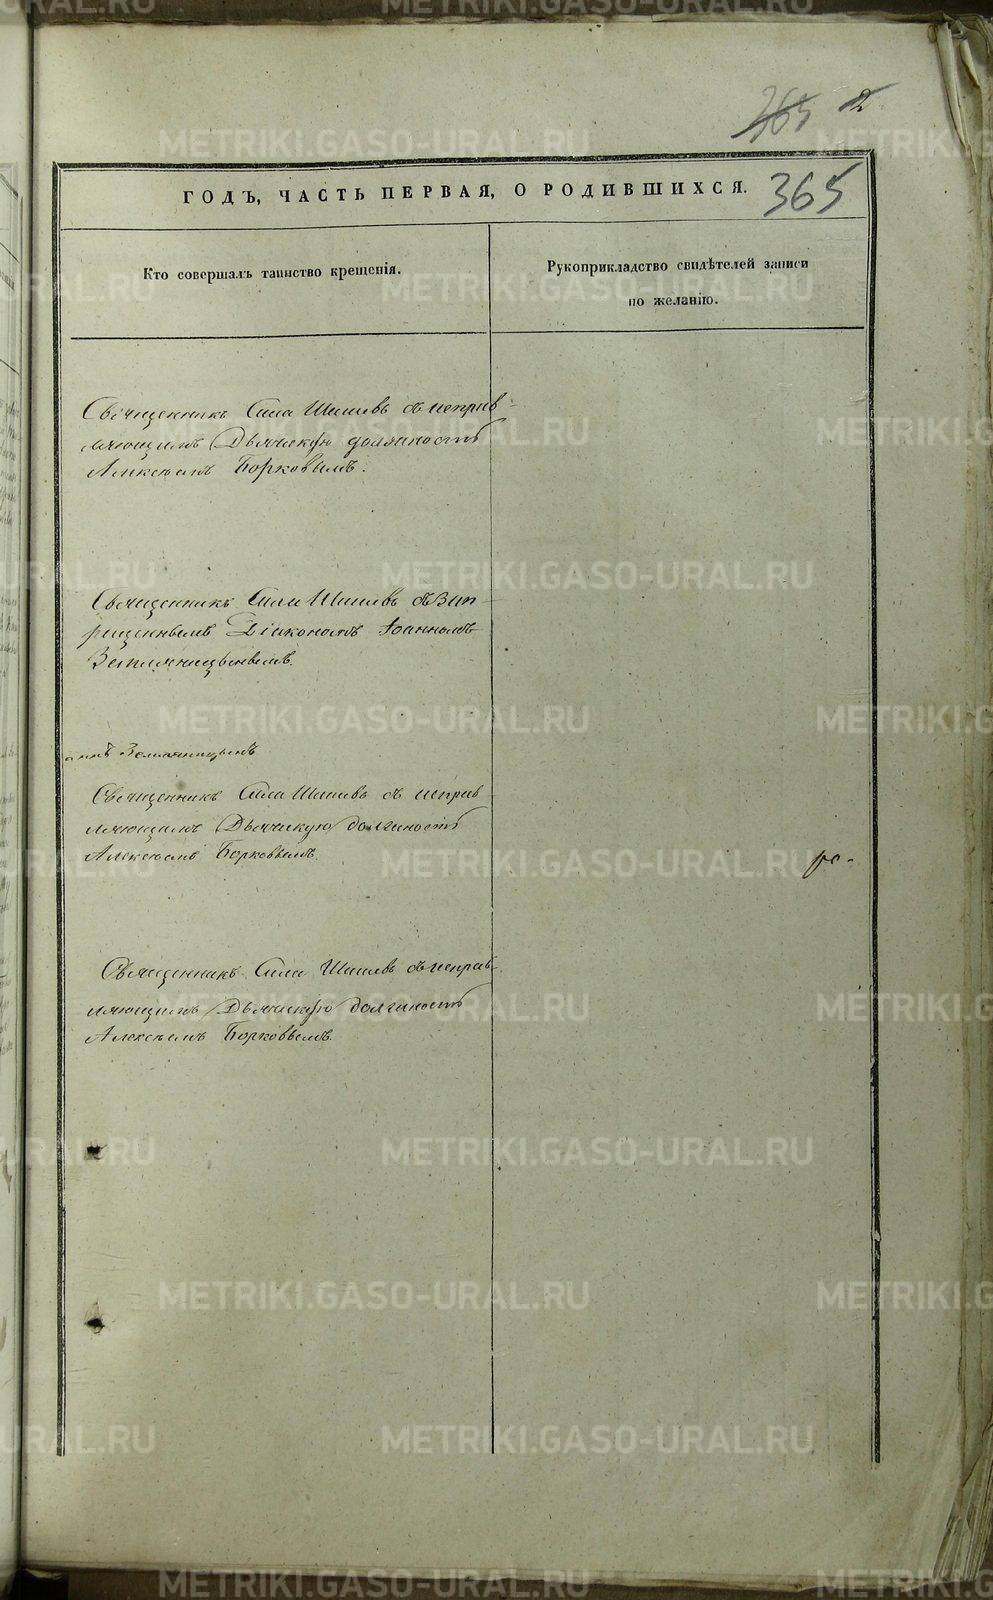 365
365
ГОДЪ, ЧАСТЬ ПЕРВАЯ, О РОДИВШИХСЯ.
Кто совершалъ таинство крещенія.
Рукоприкладство свидѣтелей записи
по желанію.
Священникъ Сила Шишевъ съ исправ-
ляющимъ Дьяческую должность
Алексѣемъ Борковымъ.
Священникъ Сила Шишевъ съ Зап-
рещеннымъ Діакономъ Іоанномъ
Земляницынымъ.
Земляницынъ
Священникъ Сила Шишевъ съ исправ-
ляющимъ Дьяческую должность
Алексѣемъ Борковымъ.
Священникъ Сила Шишевъ съ исправ-
ляющимъ Дьяческую должность
Алексѣемъ Борковымъ.
METRIKI.GASO-URAL.RU